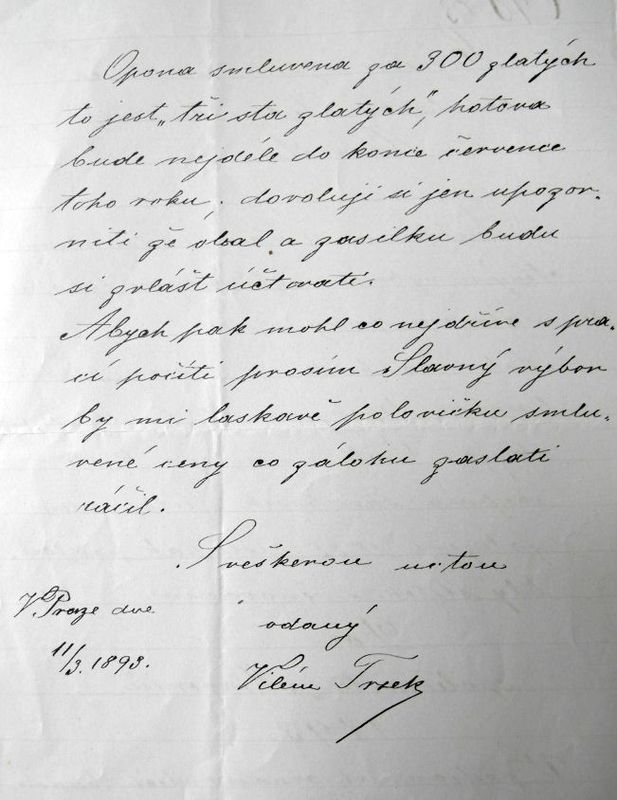 Opona smluvena za 300 zlatých
to jest „tři sta zlatých", hotova
bude nejdéle do konce července
toho roku, dovoluji si jen upozor-
niti že obal a zasilku budu
si zvlášt účtovati.
Abych pak mohl co nejdříve s pra-
cí počíti prosím Slavný výbor
by mi laskavě polovičku smlu-
vené ceny co zálohu zaslati
ráčil.
S veškerou uctou
V Praze dne
odaný
11/3. 1893.
Vilém Trsek